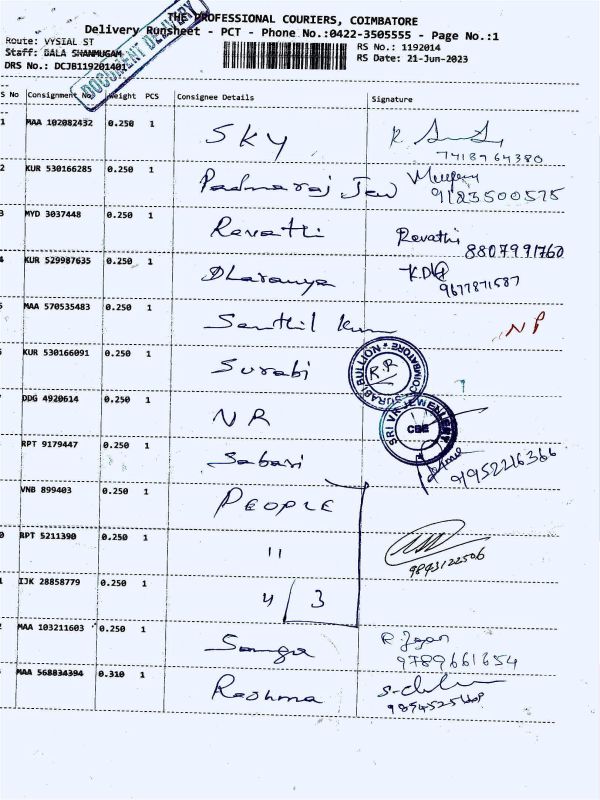 THE PROFESSIONAL COURIERS, COIMBATORE
Delivery Runsheet - PCT - Phone No.:0422-3505555 - Page No.:1
DOCUMENT DELIVERY
Route: VYSIAL ST
RS No.: 1192014
Staff: BALA SHANMUGAM
RS Date: 21-Jun-2023
DRS No.: DCJB119201401
S No Consignment No. Weight PCS Consignee Details Signature
1 MAA 102082432 0.250 1 SKY
7418764380
2 KUR 530166285 0.250 1 Padmaraj Jew
9183500575
3 MYD 3037448 0.250 1 Revathi Revathi 8807991760
4 KUR 529987635 0.250 1 Dharanya K.D
9677871587
MAA 570535483 0.250 1 Senthil Kum NP
KUR 530166091 0.250 1 Surabi SURABI BULLION COIMBATORE R.R
DDG 4920614 0.250 1 NR SRI VR JEWEL CBE
RPT 9179447 0.250 1 Sabari
9952216366
VNB 899403 0.250 1 PEOPLE
0 RPT 5211390 0.250 1 11
9893122506
1 IJK 28858779 0.250 1 4/3
2 MAA 103211603 0.250 1 Sanga R.Jgan
9789661654
MAA 568834394 0.310 1 Reshma